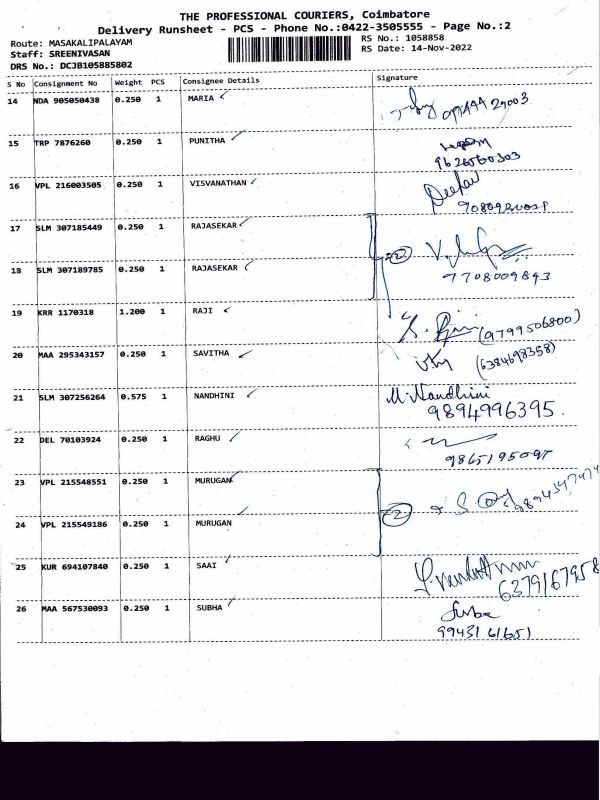 THE PROFESSIONAL COURIERS, Coimbatore
Delivery Runsheet - PCS - Phone No.:0422-3505555 - Page No.:2
Route: MASAKALIPALAYAM
RS No.: 1058858
Staff: SREENIVASAN
RS Date: 14-Nov-2022
DRS No.: DCJB105885802
S No Consignment No Weight PCS Consignee Details Signature
14 NDA 905050438 0.250 1 MARIA
15 TRP 7876260 0.250 1 PUNITHA
16 VPL 216003505 0.250 1 VISVANATHAN Deepan
17 SLM 307185449 0.250 1 RAJASEKAR
18 SLM 307189785 0.250 1 RAJASEKAR
7708009843
19 KRR 1170318 1.200 1 RAJI (9799506800)
20 MAA 295343157 0.250 1 SAVITHA (6384698358)
21 SLM 307256264 0.575 1 NANDHINI M. Nandhini
9894996395.
22 DEL 70103924 0.250 1 RAGHU
23 VPL 215548551 0.250 1 MURUGAN
24 VPL 215549186 0.250 1 MURUGAN
25 KUR 694107840 0.250 1 SAAI
6379167958
26 MAA 567530093 0.250 1 SUBHA Suba
99431 61651